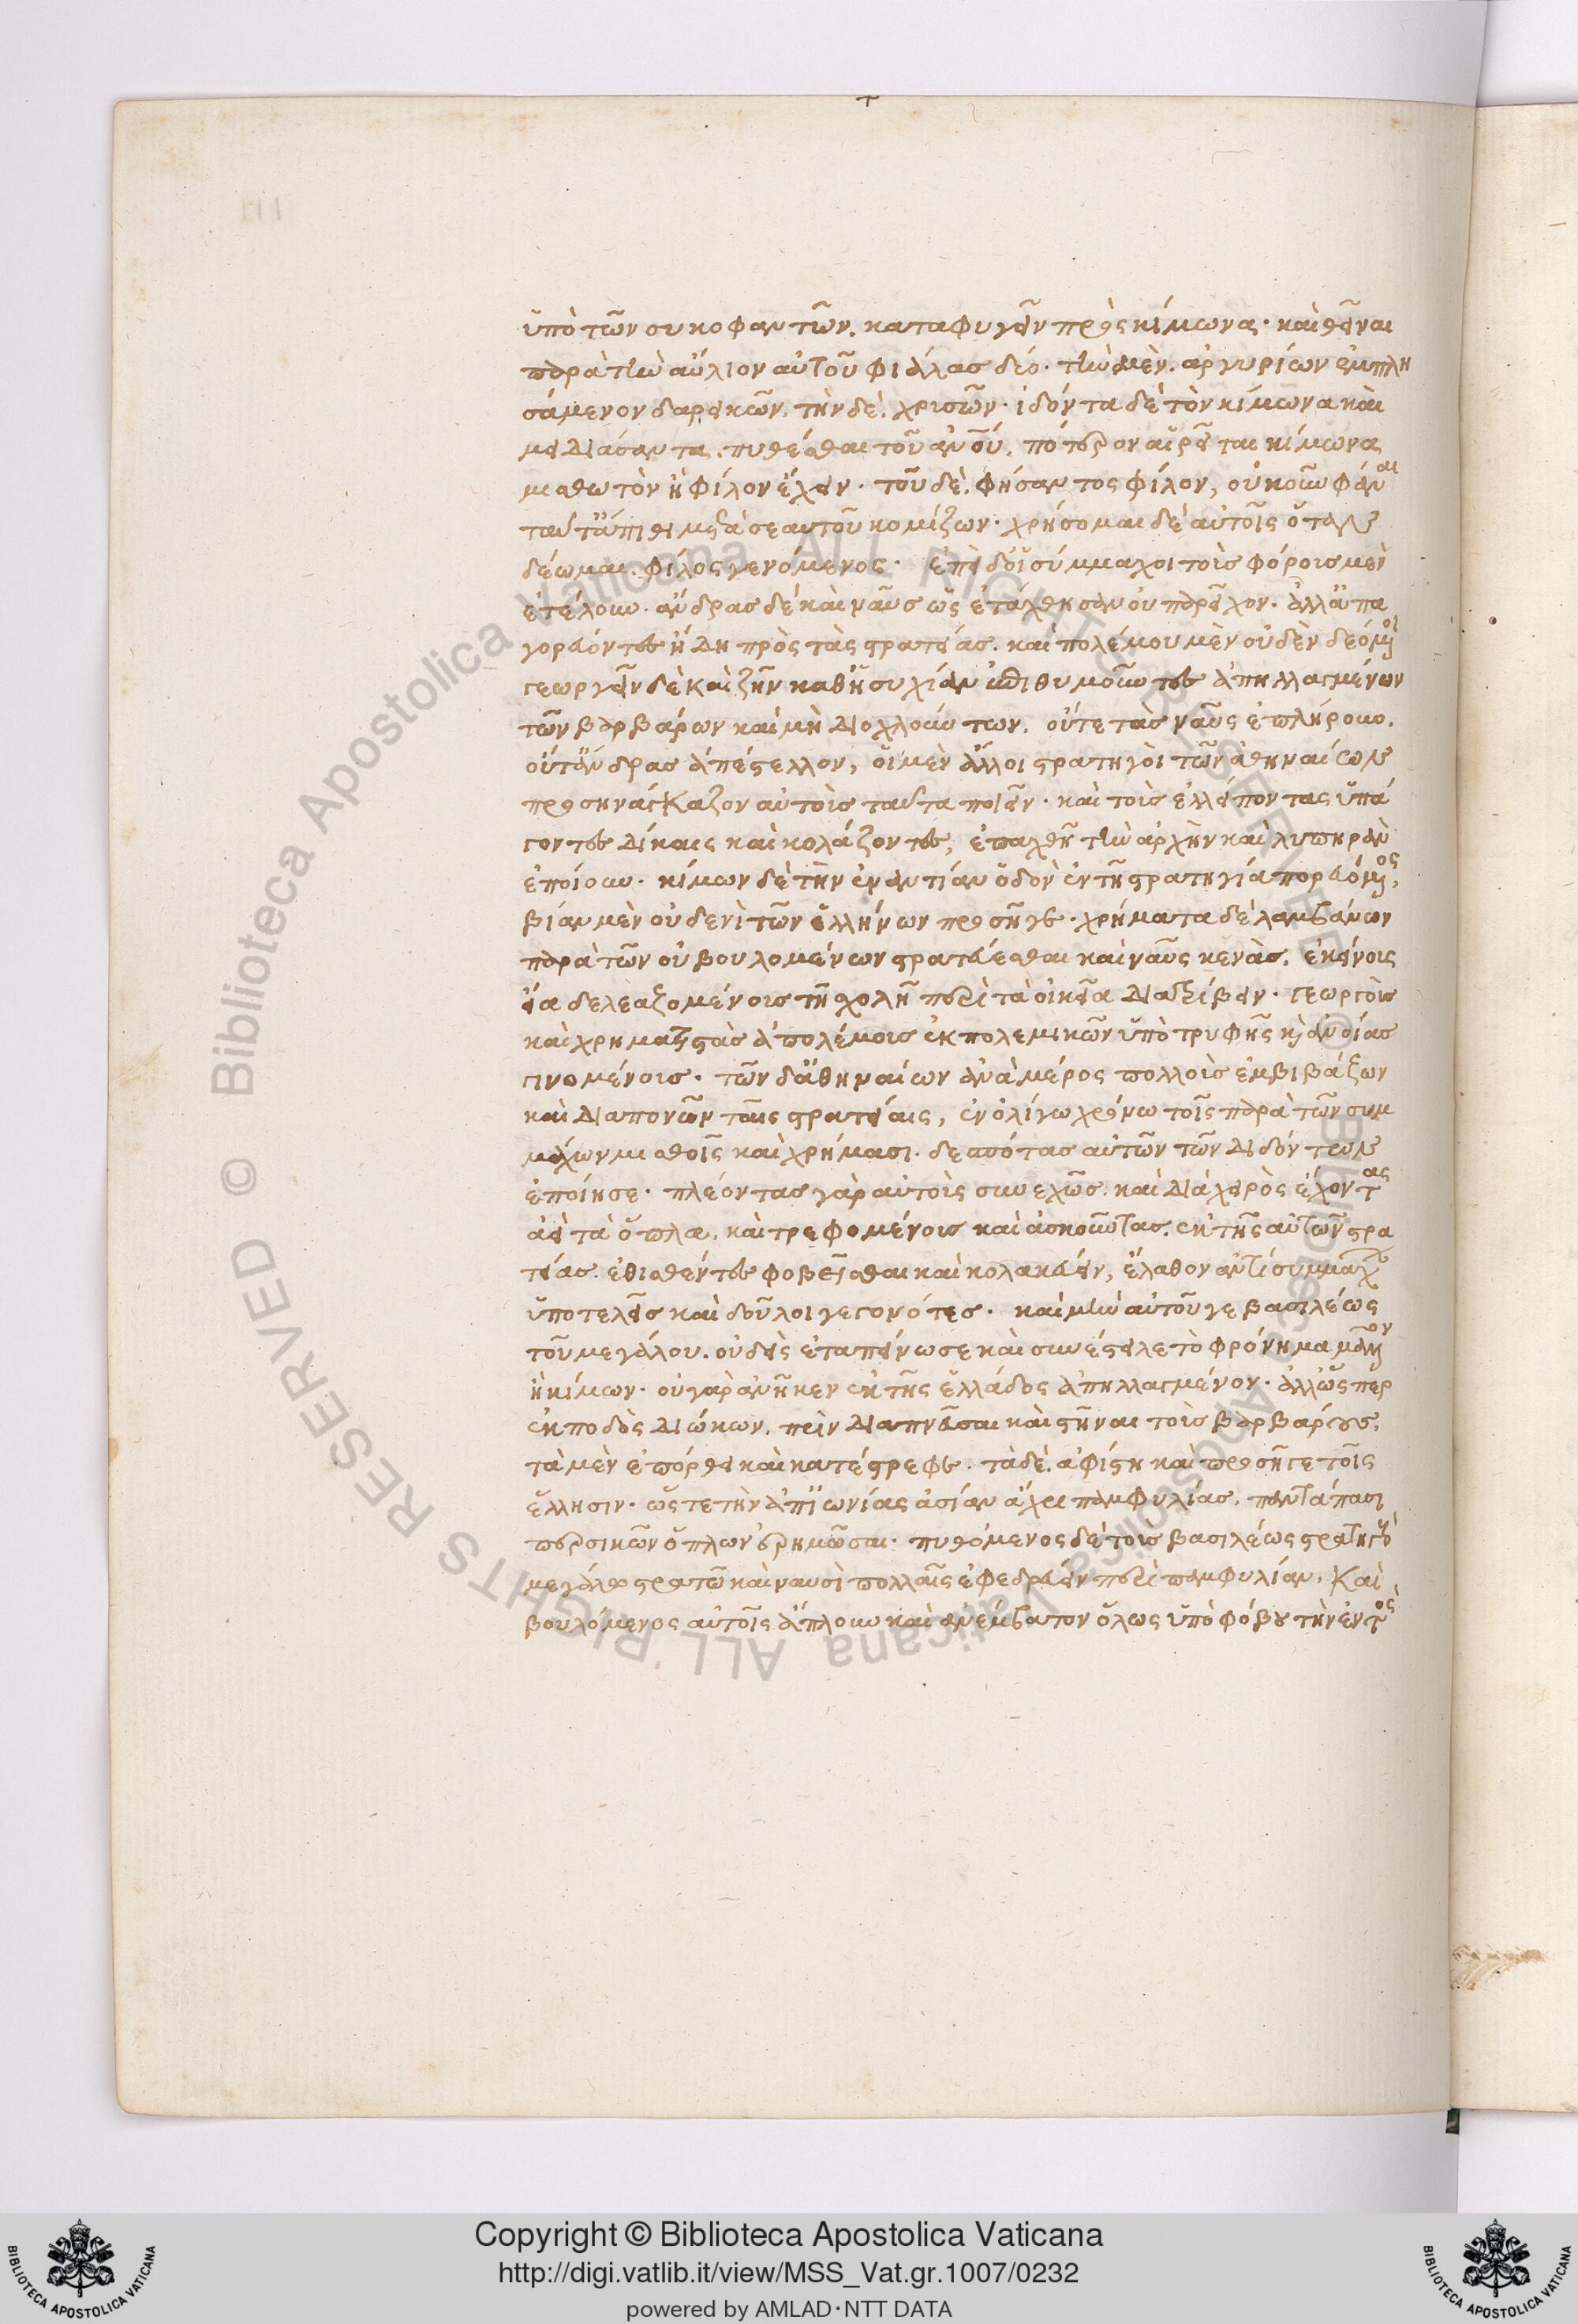 ὑπὸ τῶν συκοφαντῶν. καταφυγεῖν πρὸς κίμωνα· καὶ θεῖναι
παρὰ τὴν αὔλιον αὐτοῦ φιάλας δύο· τὴν μὲν. ἀργυρίων ἐμπλη
σάμενον δαρεικῶν. τὴν δὲ. χρυσῶν· ἰδόντα δὲ τὸν κίμωνα καὶ
μειδιάσαντα. πυθέσθαι τοῦ ἀνου. πότερον αἱρεῖται κίμωνα
μισθωτὸν ἢ φίλον ἔχειν· τοῦ δὲ. φήσαντος φίλον, οὐκοῦν φάναι
ταῦτ' ἄπιθι μετὰ σεαυτοῦ κομίζων· χρήσομαι δὲ αὐτοῖς ὅταν
δέωμαι. φίλος γενόμενος· ἐπεὶ δ' οἱ σύμμαχοι τοὺς φόρους μὲν
ἐτέλουν. ἄνδρας δὲ καὶ ναῦς ὡς ἐτάχθησαν οὐ παρεῖχον. ἀλλ' ἀπα
γορεύοντες ἤδη πρὸς τὰς στρατείας. καὶ πολέμου μὲν οὐδὲν δεόμενοι
γεωργεῖν δὲ καὶ ζῆν καθ' ἡσυχίαν ἐπιθυμοῦντες ἀπηλλαγμένων
τῶν βαρβάρων καὶ μὴ διοχλούντων. οὔτε τὰς ναῦς ἐπλήρουν.
οὔτ' ἄνδρας ἀπέστελλον, οἱ μὲν ἄλλοι στρατηγοὶ τῶν ἀθηναίων
προσηνάγκαζον αὐτοὺς ταῦτα ποιεῖν· καὶ τοὺς ἐλλείποντας ὑπά
γοντες δίκαις καὶ κολάζοντες, ἐπαχθῆ τὴν ἀρχὴν καὶ λυπηρὰν
ἐποίουν· κίμων δὲ τὴν ἐναντίαν ὁδὸν ἐν τῇ στρατηγίᾳ πορευόμενος,
βίαν μὲν οὐδενὶ τῶν ἑλλήνων προσῆγε· χρήματα δὲ λαμβάνων
παρὰ τῶν οὐ βουλομένων στρατεύεσθαι καὶ ναῦς κενὰς. ἐκείνους
εἴα δελεαζομένους τῇ σχολῇ περὶ τὰ οἰκεῖα διατρίβειν· γεωργοὺς
καὶ χρηματιστὰς ἀπολέμους ἐκ πολεμικῶν ὑπὸ τρυφῆς κ(αὶ) ἀνοίας
γινομένους· τῶν δ' ἀθηναίων ἀνὰ μέρος πολλοὺς ἐμβιβάζων
καὶ διαπονῶν ταῖς στρατείαις, ἐν ὀλίγω χρόνω τοῖς παρὰ τῶν συμ
μάχων μισθοῖς καὶ χρήμασι. δεσπότας αὐτῶν τῶν διδόντων
ἐποίησε· πλέοντας γὰρ αὐτοὺς συνεχῶς. καὶ διὰ χειρὸς ἔχοντας
ἀεὶ τὰ ὅπλα. καὶ τρεφομένους καὶ ἀσκοῦντας. ἐκ τῆς αὐτῶν στρα
τείας. ἐθισθέντες φοβεῖσθαι καὶ κολακεύειν, ἔλαθον ἀντὶ συμμάχων
ὑποτελεῖς καὶ δοῦλοι γεγονότες· καὶ μὴν αὐτοῦ γε βασιλέως
τοῦ μεγάλου. οὐδεὶς ἐταπείνωσε καὶ συνέστειλε τὸ φρόνημα μᾶλλον
ἢ κίμων· οὐ γὰρ ἀνῆκεν ἐκ τῆς ἑλλάδος ἀπηλλαγμένον· ἀλλ' ὥσπερ
ἐκ ποδὸς διώκων. πρὶν διαπνεῦσαι καὶ στῆναι τοὺς βαρβάρους,
τὰ μὲν ἐπόρθει καὶ κατέστρεφε· τὰ δὲ. ἀφίστη καὶ προσῆγε τοῖς
ἕλλησιν· ὥστε τὴν ἀπ' ἰωνίας ἀσίαν ἄχρι παμφυλίας. παντάπασι
περσικῶν ὅπλων ἐρημῶσαι· πυθόμενος δὲ τοὺς βασιλέως στρατηγοὺς
μεγάλω στρατῶ καὶ ναυσὶ πολλαῖς ἐφεδρεύειν περὶ παμφυλίαν. καὶ
βουλόμενος αὐτοῖς ἄπλουν καὶ ἀνέμβατον ὅλως ὑπὸ φόβου τὴν ἐντὸς
Copyright © Biblioteca Apostolica Vaticana
http://digi.vatlib.it/view/MSS_Vat.gr.1007/0232
powered by AMLAD·NTT DATA